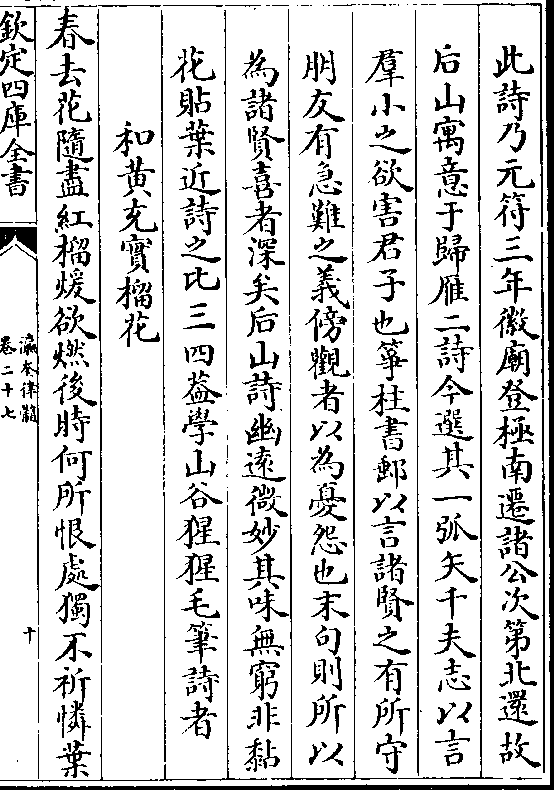 此詩乃元符三年徽廟登極南遷諸公次第北還故
后山寓意于歸雁二詩今選其一弧矢千夫志以言
羣小之欲害君子也箏柱書郵以言諸賢之有所守
朋友有急難之義傍觀者以為憂怨也末句則所以
為諸賢喜者深矣后山詩幽遠微妙其味無窮非黏
花貼葉近詩之比三四葢學山谷猩猩毛筆詩者
和黄充實榴花
春去花隨盡紅榴煖欲燃後時何所恨處獨不祈憐葉
欽定四庫全書
瀛奎律髓
卷二十七
十